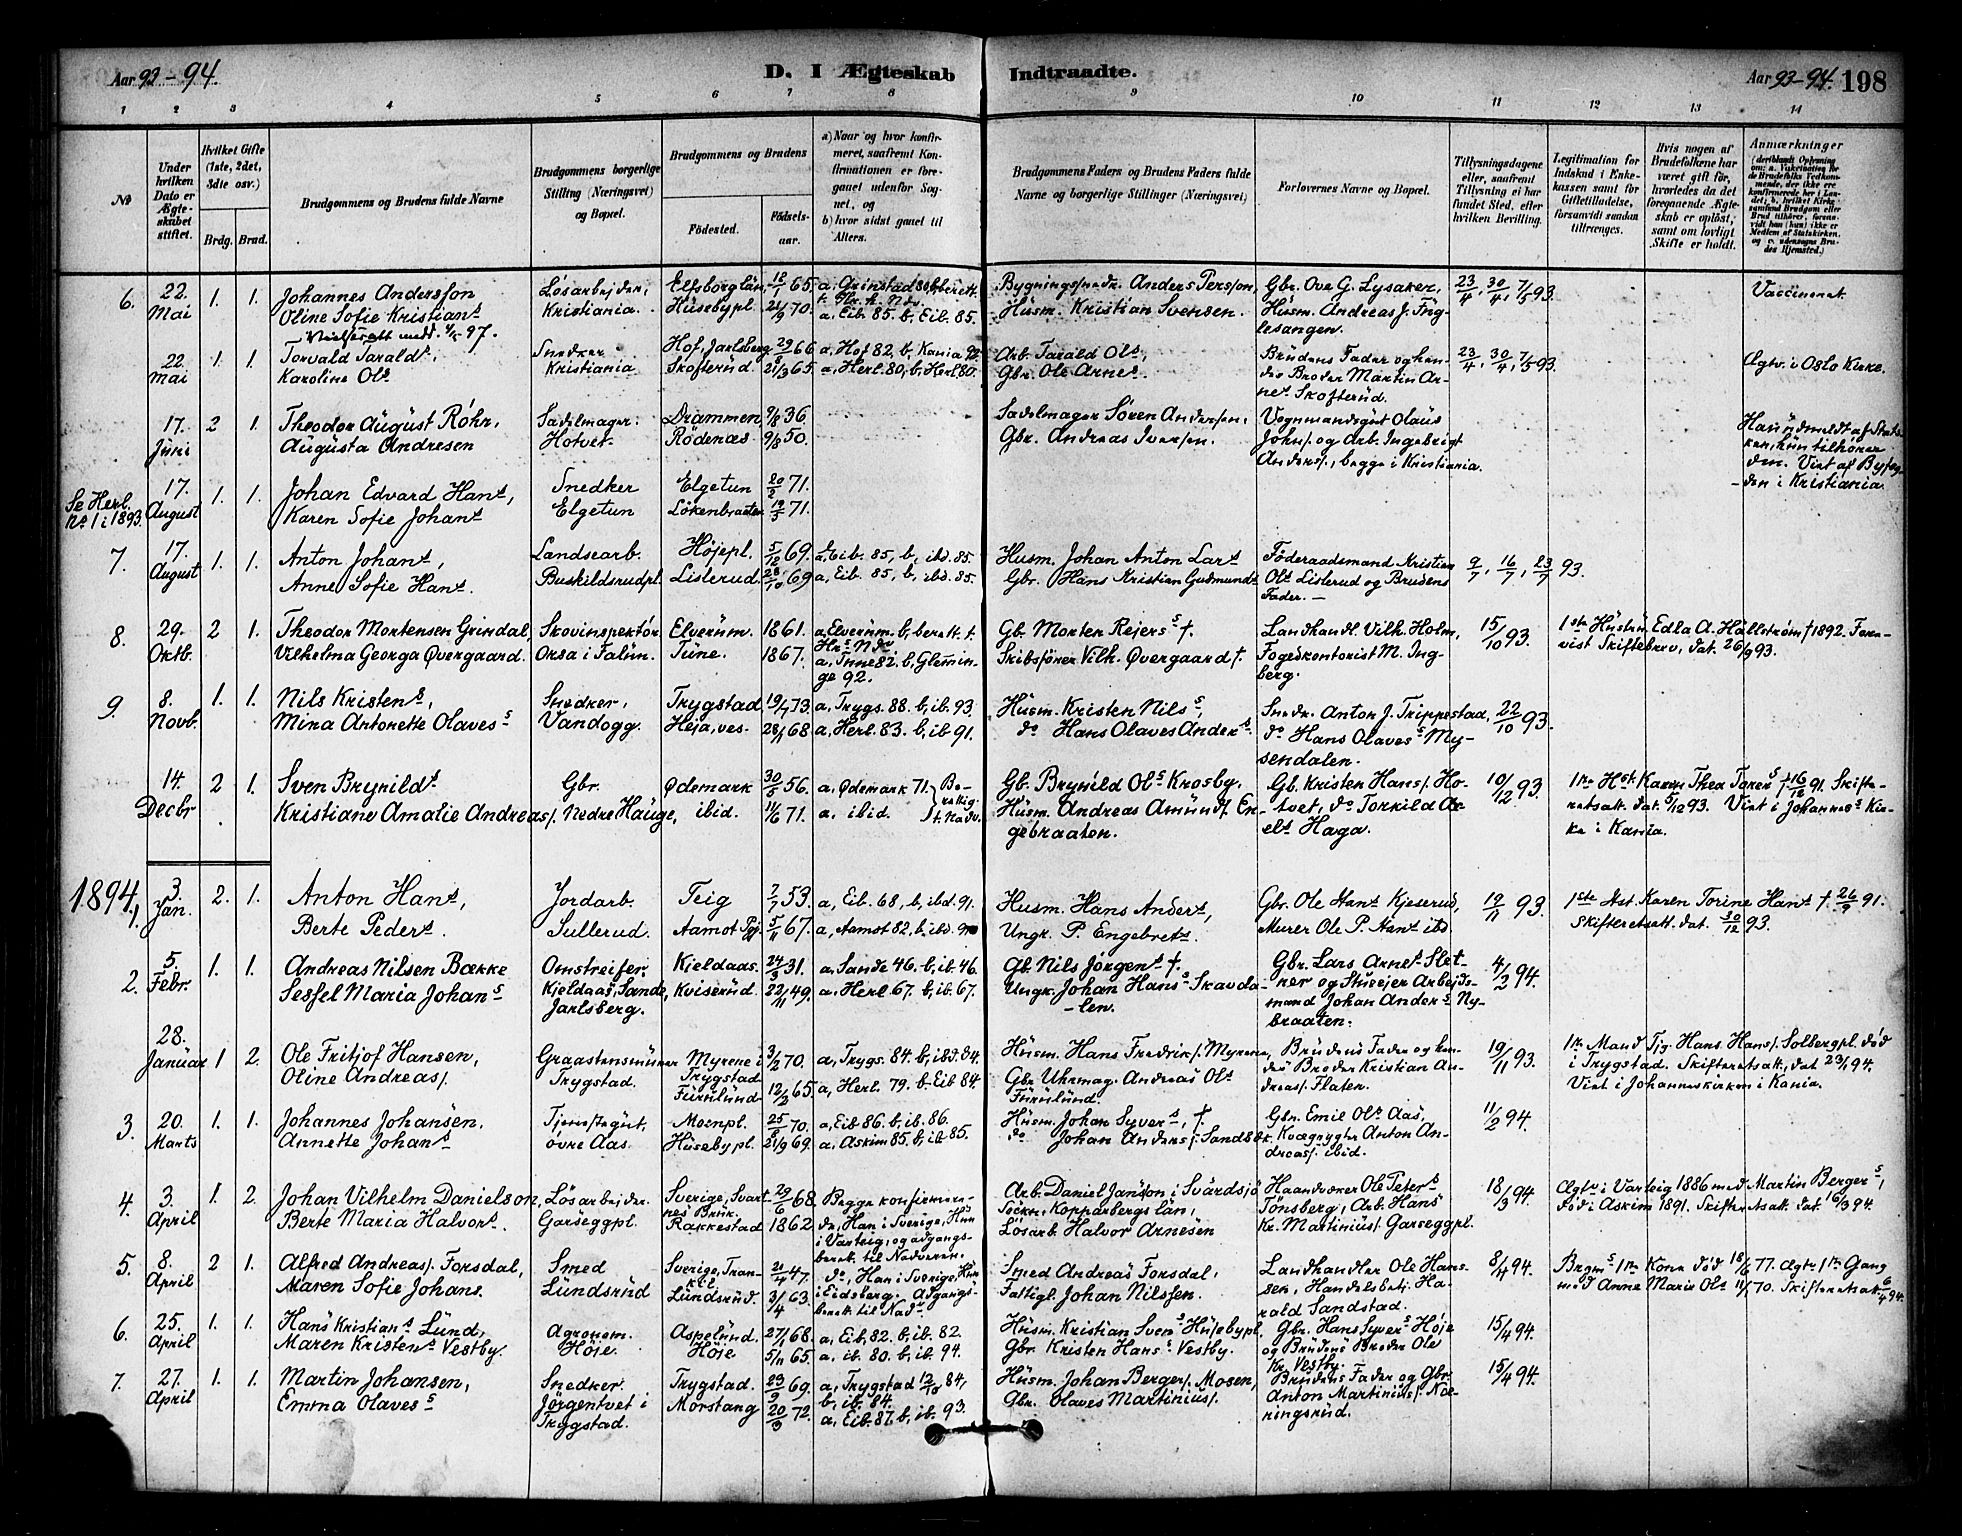 Aar 93-94.
D. I Ægteskab
Indtraadte.
Aar 93-94. 198
1 2 3 4 5 6 7 8 9 10 11 12 13 14
No
Under hvilken Dato er Ægteskabet stiftet.
Hvilket Gifte (1ste, 2det, 3die osv.)
Brdg. Brud.
Brudgommens og Brudens fulde Navne
Brudgommens borgerlige Stilling (Næringsvei) og Bopæl.
Brudgommens og Brudens
Födested.
Födsels-aar.
a) Naar og hvor konfirmeret, saafremt Konfirmationen er foregaaet udenfor Sognet, og
b) hvor sidst gaaet til Alters.
Brudgommens Faders og Brudens Faders fulde Navne og borgerlige Stillinger (Næringsvei)
Forlovernes Navne og Bopæl.
Tillysningsdagene eller, saafremt Tillysning ei har fundet Sted, efter hvilken Bevilling.
Legitimation for Indskud i Enkekassen samt for Giftetilladelse, forsaavidt saadan tiltrænges.
Hvis nogen af Brudefolkene har været gift för, hvorledes da det foregaaende Ægteskab er oplöst, samt om lovligt Skifte er holdt.
Anmærkninger
6. 22. Mai 1. 1. Johannes Andersson Lösarbejder, Elfsborg län, 65. a, Grinstad b, berett. Bygningssnedk. Anders Persson, Gbr. Ove G. Lysaker, 23/4, 30/4, 7/5 93. Vaccineret.
Oline Sofie Kristians Kristiania. Hüsebypl. 21/9 70. a. Eib. 85. b, Eib. 85. Hüsm. Kristian Svensen. Hüsm. Andreas J. Füglesangen.
22 Mai 1 1 Torvald Taralds, Snedker Hof, Jarlsberg 66 a, Hof 82, b, Kania 92. Arb. Tarald Ols, Brüdens Fader og hendes Broder Martin Arnes. Skofterüd. 23/4, 30/4, 7/5 93. Ægtv. i Oslo Kirke.
Karoline Ols Kristiania Skofterüd 21/3 65 a, Herl. 80, b, Herl 80. Gbr. Ole Arnes.
17. Juni 2 1. Theodor Aügüst Röhr, Sadelmager. Drammen, 9/8 36. Sadelmager Sören Andersen, Vognmandsgüt Olaüs Johns. og Arb. Ingebrigt Anders., begge i Kristiania.
Aügüsta Andresen Hotvet. Rödenæs 9/8 50. Gbr. Andreas Iversen.
Se Herl. No 1 i 1893. 17. August 1. 1. Johan Edvard Hans, Snedker Elgetun 20/2 71.
Karen Sofie Johans Elgetun Lökenbraaten 19/3 71.
7. 17. August 1. 1. Anton Johans, Landsearb. Höjepl. 5/12 69. a, Eib. 85, b, ibd. 85. Husm. Johan Anton Lars Föderaadsmand Kristian Ols Lislerud og Brudens Fader. 9/7, 16/7, 23/7 93.
Anne Sofie Hans. Buskildsrudpl. Lislerud. 28/10 69 a, Eib. 85, b, ibd. 85. Gbr. Hans Kristian Gudmunds
8. 29. Oktb. 2 1. Theodor Mortensen Grindal, Skovinspektör Elverüm. 1861. a, Elverüm. b, berett. t. Gb. Morten Rejers †. Landhandl. Vilh. Holm, Fogedkontorist M. Ingberg. 15/10 93. 1ste Hüstrü Edla A. Hällström † 1892. Forevist Skiftebrev, dat. 26/9 93.
Vilhelma Georga Øvergaard. Orsa i Falün. Tüne. 1867. a, Tüne 82, b, Glemminge 92. Skibsförer Vilh. Øvergaard †.
9. 8. Novb. 1. 1. Nils Kristens, Snedker, Trygstad 73. a, Trygs. 88. b, ib. 93. Hüsm. Kristen Nils, Snedk. Anton J. Trippestad, do Hans Olaves Mysendalen. 22/10 93.
Mina Antonette Olaves Vandogg. Heja, ves. 28/1 68 a, Herl. 83. b, ib 91. do Hans Olaves Anders.
14. Decbr 2 1. Sven Brynilds Gbr. Ødemark 30/5 56. a, Ødemark 71. Gb. Brynild Ols Krosby. Gb. Kristen Hans. Hotvet, do Torkild Axels Haga. 10/12 93. 1ste Hst. Karen Thea Tores † 16/12 91. Skifteretsatt. dat. 5/12 93. Viet i Johannes Kirke i Kania.
Kristiane Amalie Andreas. Nedre Haüge, ibid. 11/6 71. a. ibid. Hüsm. Andreas Amünds. Engebraaten.
1894.
1 3. Jan. 2. 1. Anton Hans, Jordarb. Teig 7/7 53. a, Eib. 68, b, ibd. 91. Husm. Hans Anders, Gbr. Ole Hans Kjeserud, Murer Ole P. Hans ibd. 19/11 93. 1ste Hst. Karen Torine Hans † 26/9 91. Skifteretsatt. dat. 30/12 93.
Berte Peders. Sullerud. Aamot 5/11 67. a, Aamot 82, b, ibd. Ungk. P. Engebrets.
2. 5. Febr. 1. 1. Andreas Nilsen Bække Omstreifer. Kjeldaas. 24/3 31. a, Sande 46. b, ib. 46. Gb. Nils Jörgens †. Gbr. Lars Arnes Sletner og Stüeejer Arbejdsmand Johan Anders Nybraaten. 4/2 94.
Sessel Maria Johans Kjeldaas, Sande, Jarlsberg. Kviserüd 22/11 49. a. Herl. 67. b, ib. 67. Ungk. Johan Hans Skavdalen.
28. Januar 1 2. Ole Fritjof Hansen, Graastensminer Trygstad. Myrene i Trygstad 3/2 70. a, Trygs. 84. b, ibd. 84. Hüsm. Hans Fredrik. Myrene, Brüdens Fader og hendes Broder Kristian Andreas. Flaten. 19/11 93. 1ste Mand Tjg. Hans Hans. Solbergpl. död i Trygstad. Skifteretsatt. dat 23/1 94. Viet i Johanneskirken i Kania.
Oline Andreas. Fürülünd 12/3 65. a, Herl. 79. b. Eib 84. Gbr Uhrmag. Andreas Ols Fürülünd.
3. 20. Marts 1. 1. Johannes Johansen. Tjenestegüt, Moenpl. 25/8 70. a, Eib 86. b, ib. 86. Hüsm. Johan Syvers, † Gbr. Emil Ols Aas, Kvægrygter Anton Andreas. ibid. 11/2 94.
Annette Johans övre Aas. Hüsebypl. 21/9 69. a. Askim 85. b, ib 85. do Johan Anders. Sandbæk.
4. 3. April 1. 2. Johan Vilhelm Danielson, Lösarbejder Sverige, Svartnes Brük. 29/6 68. Begge konfirmerede, Han i Sverige, Hün i Varteig, og adgangsberett. til Nadveren. Arb. Daniel Jansson i Svärdsjö Socken, Kopparbergs län, Haandværker Ole Peters Tönsberg, Arb. Hans Kr. Martinius. Garseggpl. 18/3 94. Ægtv. i Varteig 1886 med Martin Bergers, död i Askim 1891. Skifteretsatt. dat. 16/3 94.
Berte Maria Halvors. Garseggpl. Rakkestad 1862. Lösarb. Halvor Arnesen
5. 8. April 2 1. Alfred Andreas. Forsdal, Smed Sverige, Trankil 47. do, Han i Sverige, Hün i Eidsberg. Adgangsberett. til Nadv. Smed Andreas Forsdal, Landhandler Ole Hansen, Handelsbetj. Harald Sandstad. 8/4 94. Brgms 1ste Kone död 18/6 77. Ægtv. 1ste Gang med Anne Marie Ols 11/1 70. Skifteretsatt. 6/4 94.
Maren Sofie Johans. Lündsrüd Lündsrüd. 3/4 63. Fattigl. Johan Nilssen.
6. 25. April 1. 1. Hans Kristians Lünd, Agronom. Aspelünd. 27/1 68. a, Eib. 82. b, ib. 82. Hüsm. Kristian Svens Hüsebypl. Gbr. Hans Syvers Höje og Brüdens Broder Ole Kr. Vestby. 15/4 94.
Maren Kristens Vestby. Höje. Höje 5/11 65. a. ib. 80. b, ib. 94. Gbr. Kristen Hans Vestby.
7. 27. April 1. 1. Martin Johansen, Snedker. Trygstad. 23/9 69. a, Trygstad 12/10 84, b, ib. 84. Hüsm. Johan Bergers. Mosen, Brüdens Fader og Gbr. Anton Martinius. Næringsrüd. 15/4 94.
Emma Olaves Jörgentvet i Trygstad. Morstang 20/3 72. a, Eib. 87. b, ib. 93. Gbr. Olaves Martinius.